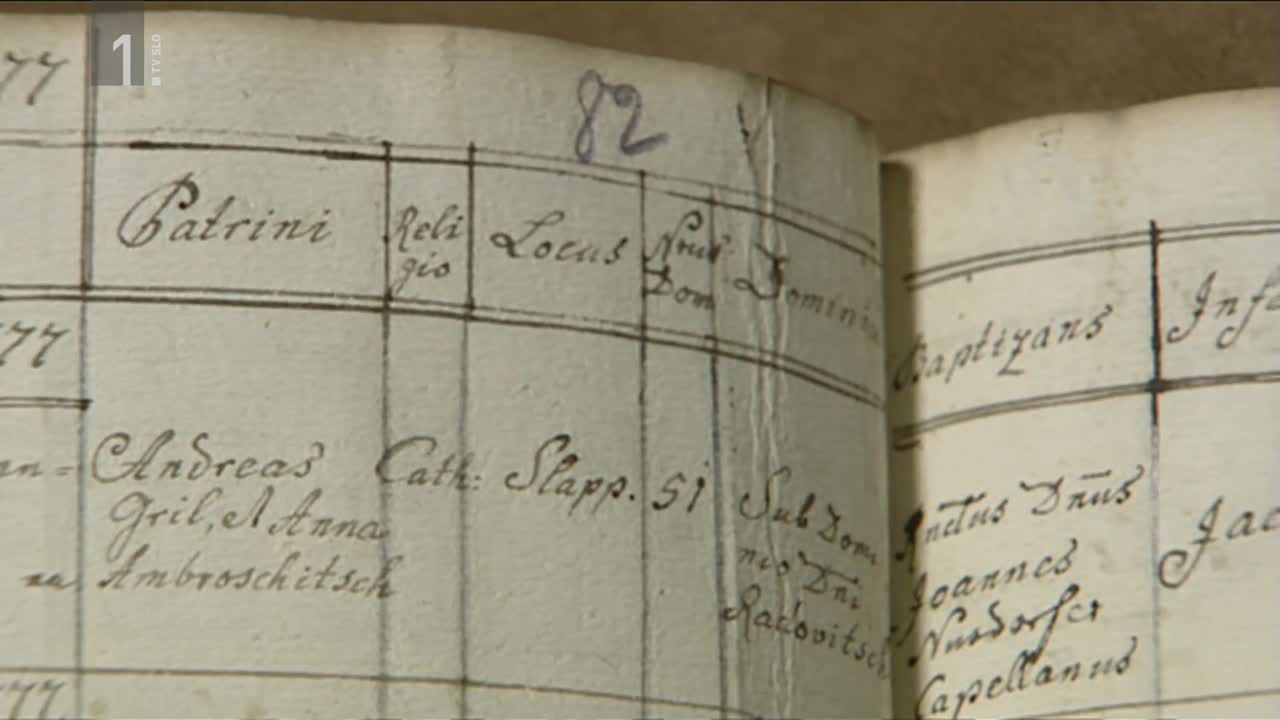 1
TV SLO
77
82
Patrini
Reli
gio
Locus
Nrus
Dom
Dominiu
Baptizans
Inf
77
an=
Andreas
Cath:
Slapp.
51
Gril, et Anna
Ambroschitsch
na
Sub Domi
nio Dni
Radovitsch
Dnus
Joannes
Capellanus
Jac
77